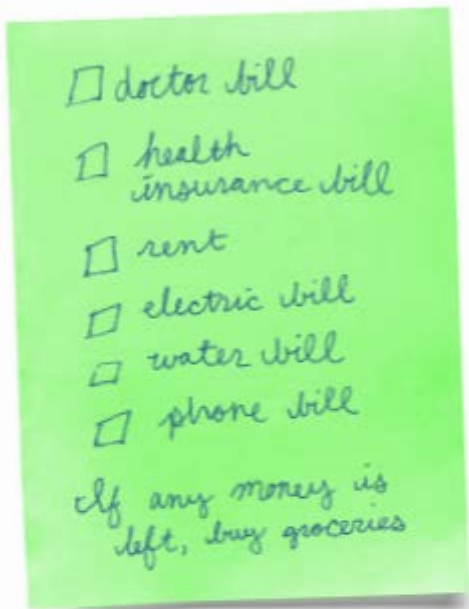 doctor bill
health
insurance bill
rent
electric bill
water bill
phone bill
If any money is
left, buy groceries